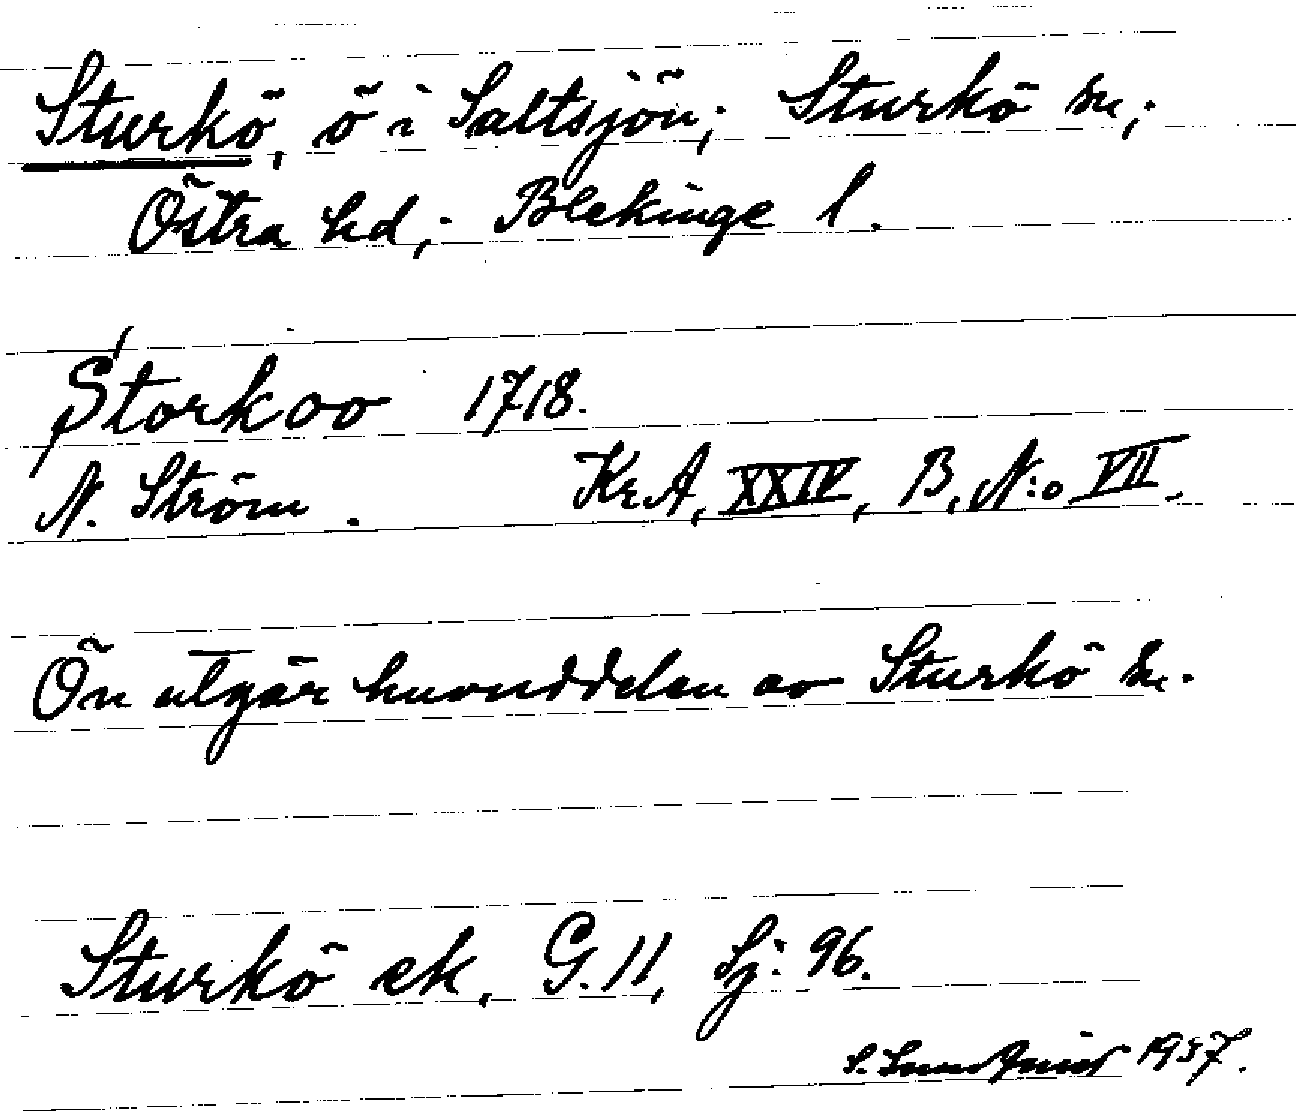 Sturkö, ö i Saltsjön; Sturkö sn;
Östra hd; Blekinge l.
Storkoo 1718.
N. Ström. KrA, XXIV, B, N:o VII.
Ön utgör huvuddelen av Sturkö sn.
Sturkö ek. G. 11, Sj: 96.
S. 1957.